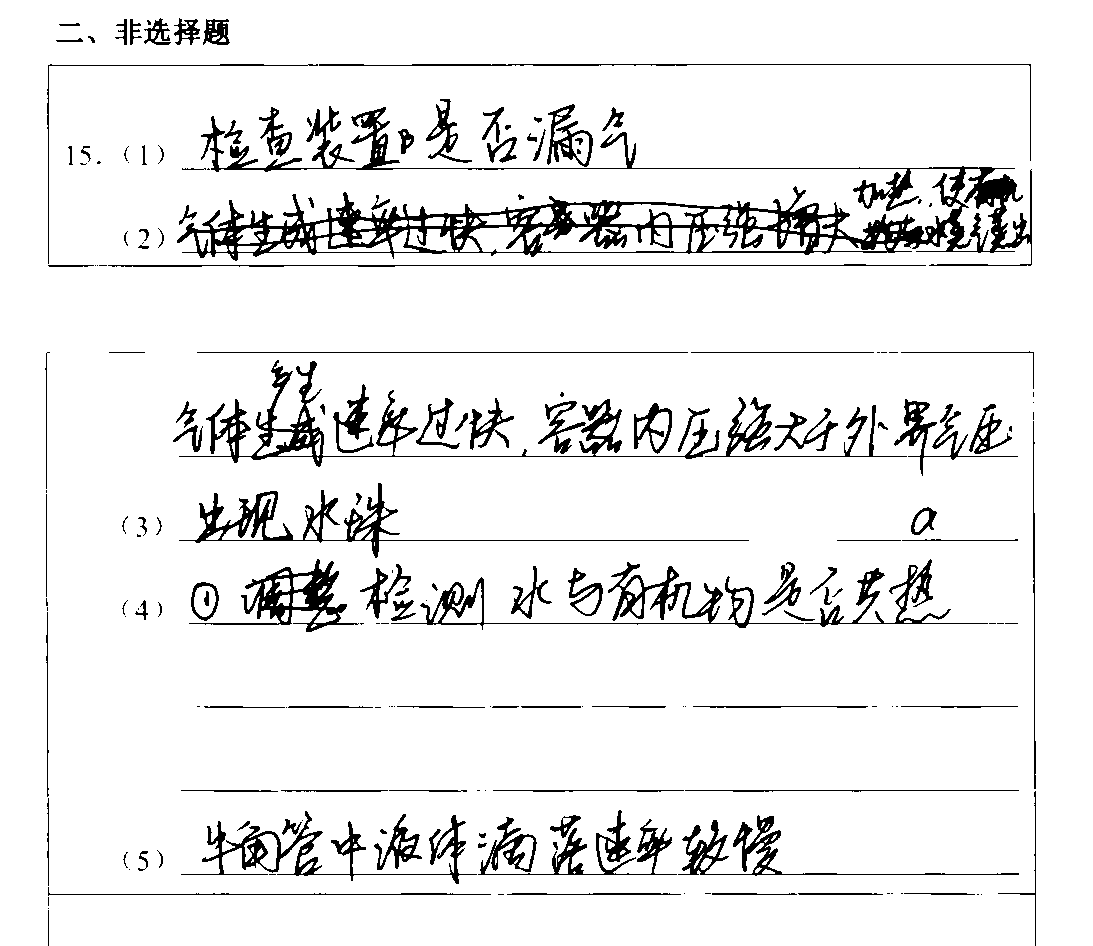 二、非选择题
15.（1）检查装置是否漏气
加热，使有机
（2）气体生成速率过快，容器内压强增大
产生
气体生成速率过快，容器内压强大于外界气压
（3）出现水珠 a
（4）① 调整 检测水与有机物是否共热
（5）牛角管中液体滴落速率较慢